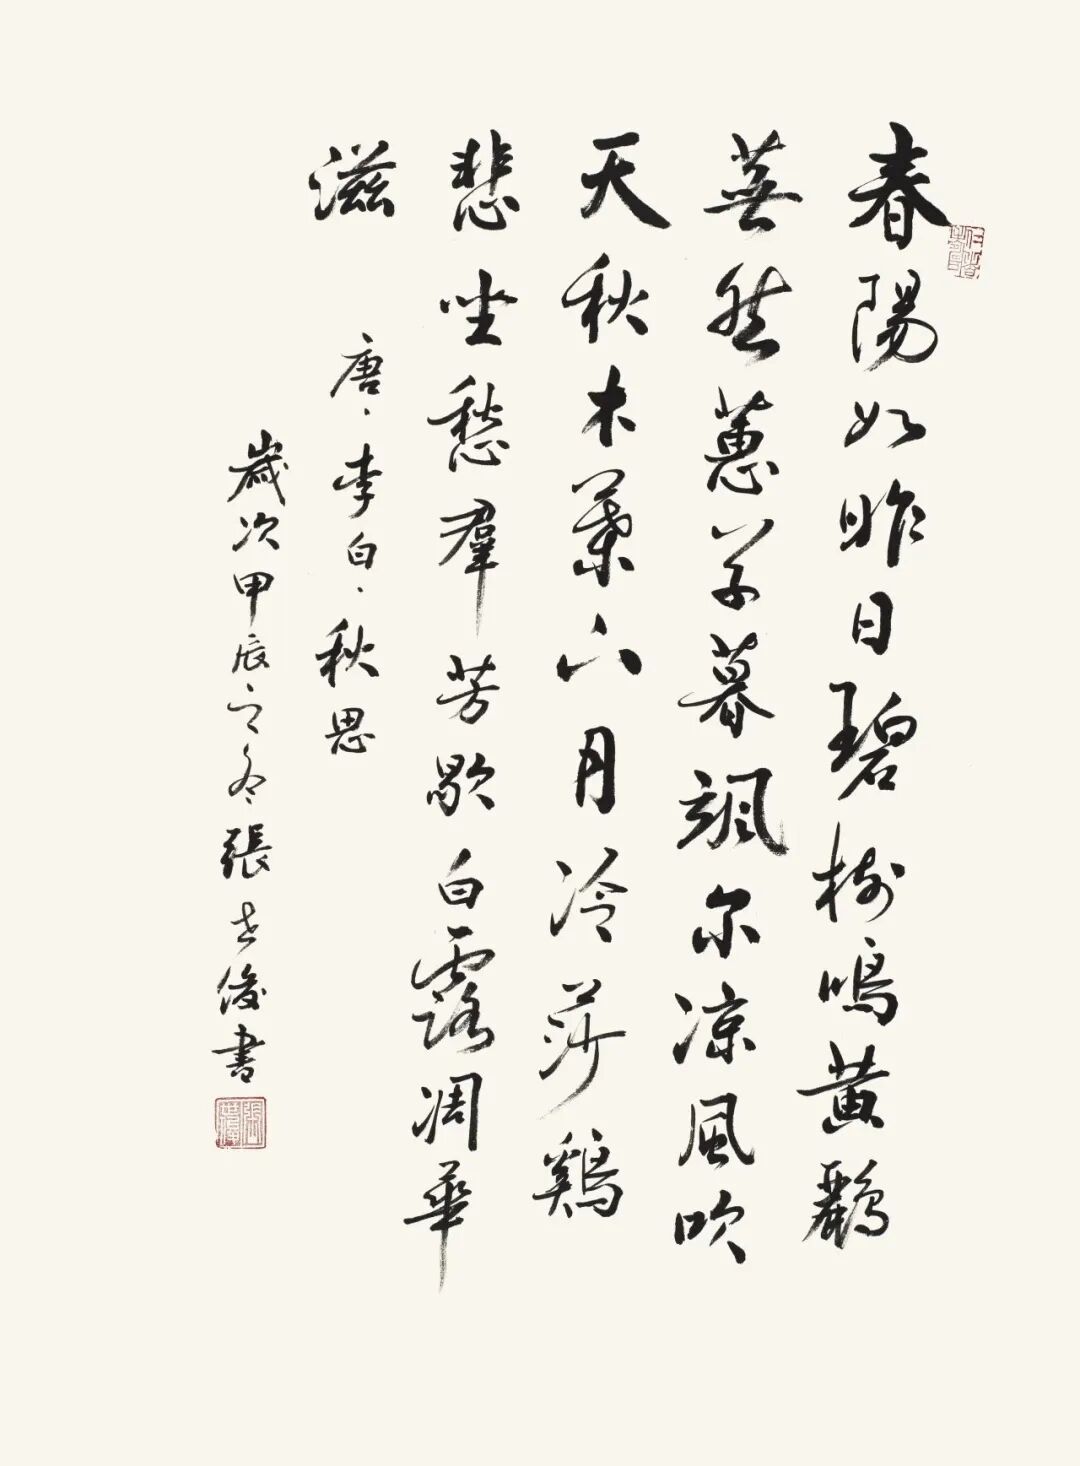 春陽如昨日碧樹鳴黄鸝
蕪然蕙草暮颯尔凉風吹
天秋木葉下月冷莎鷄
悲坐愁羣芳歇白露凋華
滋
唐、李白、秋思
歲次甲辰之冬、張世俊書